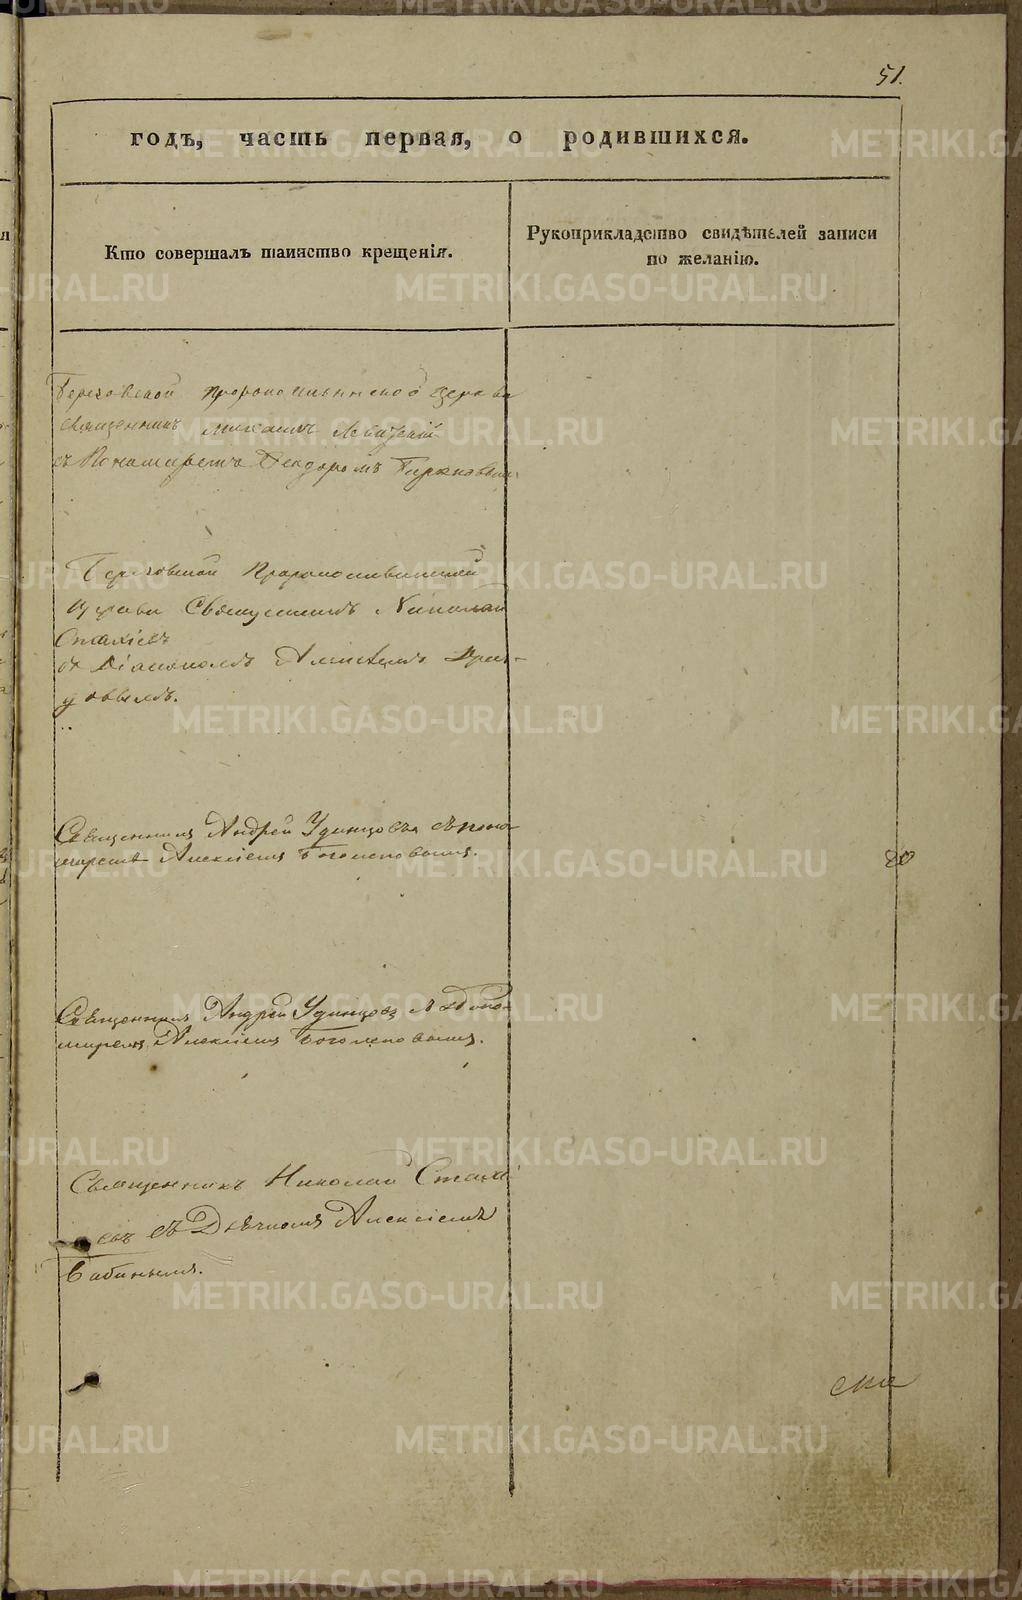 51.
годъ, часть первая, о родившихся.
Кто совершалъ таинство крещенія.
Рукоприкладство свидѣтелей записи
по желанію.
Березовской пророкоильинской церкви
священникъ Михаилъ
съ Понамаремъ Феодоромъ
Березовской Пророкоильинской
церкви Священникъ Николай
Стахіевъ
съ Діакономъ Алексѣемъ
Священникъ Андрей Удинцовъ съ поно-
маремъ Алексіемъ Боголеповымъ.
Священникъ Андрей Удинцовъ съ Поно-
маремъ Алексіемъ Боголеповымъ.
Священникъ Николай Стахі-
евъ съ Дьячкомъ Алексіемъ
Бабинымъ.
METRIKI.GASO-URAL.RU